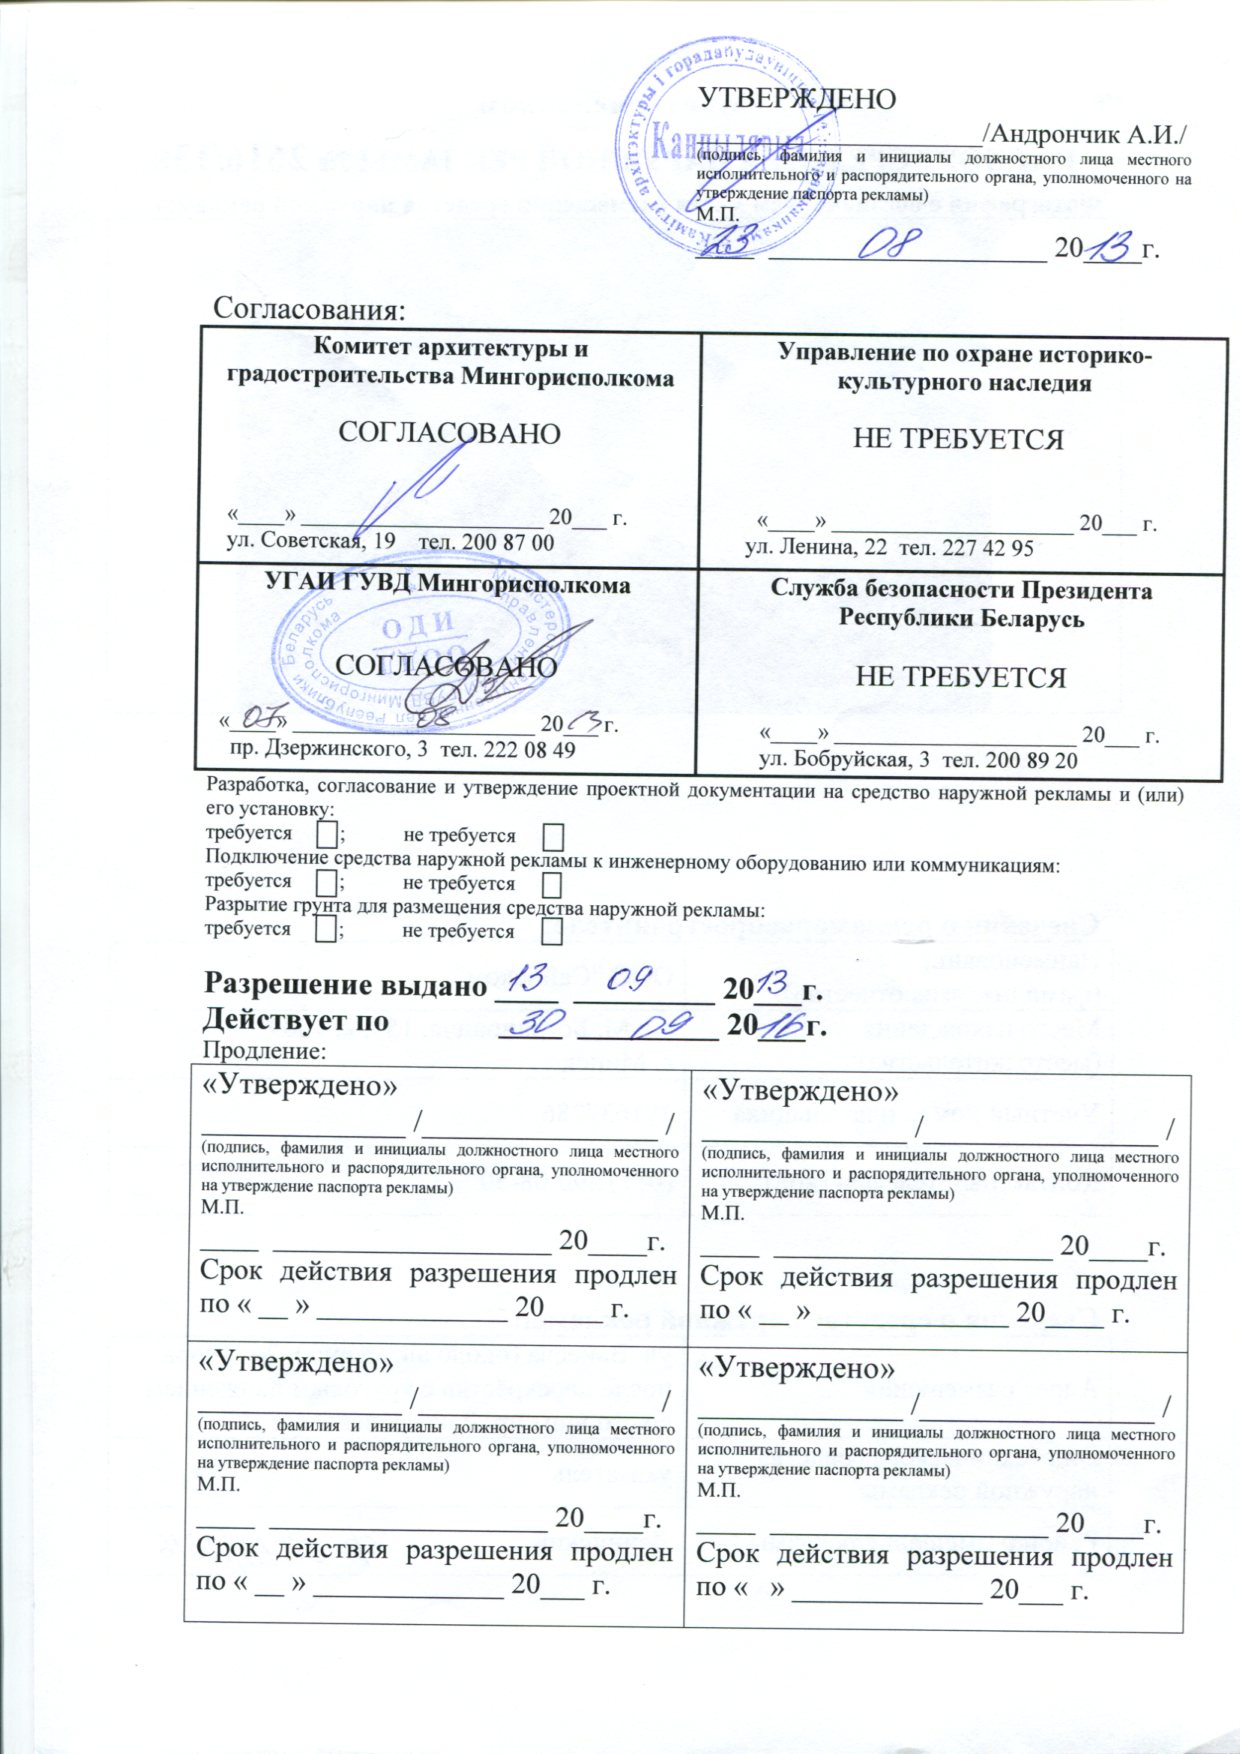 УТВЕРЖДЕНО
____________________/Андрончик А.И./
(подпись, фамилия и инициалы должностного лица местного
исполнительного и распорядительного органа, уполномоченного на
утверждение паспорта рекламы)
М.П.
23 08 2013г.
Камітэт архітэктуры і горадабудаўніцтва
Канцылярыя
Согласования:
Комитет архитектуры и
градостроительства Мингорисполкома
СОГЛАСОВАНО
«____» ____________________ 20___ г.
ул. Советская, 19 тел. 200 87 00
Управление по охране историко-
культурного наследия
НЕ ТРЕБУЕТСЯ
«____» ____________________ 20___ г.
ул. Ленина, 22 тел. 227 42 95
УГАИ ГУВД Мингорисполкома
ОДИ
СОГЛАСОВАНО
«07» 08 2013 г.
пр. Дзержинского, 3 тел. 222 08 49
Служба безопасности Президента
Республики Беларусь
НЕ ТРЕБУЕТСЯ
«____» ____________________ 20___ г.
ул. Бобруйская, 3 тел. 200 89 20
Разработка, согласование и утверждение проектной документации на средство наружной рекламы и (или)
его установку:
требуется ; не требуется
Подключение средства наружной рекламы к инженерному оборудованию или коммуникациям:
требуется ; не требуется
Разрытие грунта для размещения средства наружной рекламы:
требуется ; не требуется
Разрешение выдано 13 09 2013г.
Действует по 30 09 2016г.
Продление:
«Утверждено»
______________ /________________ /
(подпись, фамилия и инициалы должностного лица местного
исполнительного и распорядительного органа, уполномоченного
на утверждение паспорта рекламы)
М.П.
____ ___________________ 20____г.
Срок действия разрешения продлен
по « __ » _____________ 20____ г.
«Утверждено»
______________ /________________ /
(подпись, фамилия и инициалы должностного лица местного
исполнительного и распорядительного органа, уполномоченного
на утверждение паспорта рекламы)
М.П.
____ ___________________ 20____г.
Срок действия разрешения продлен
по « __ » _____________ 20____ г.
«Утверждено»
______________ /________________ /
(подпись, фамилия и инициалы должностного лица местного
исполнительного и распорядительного органа, уполномоченного
на утверждение паспорта рекламы)
М.П.
____ ___________________ 20____г.
Срок действия разрешения продлен
по « __ » _____________ 20___ г.
«Утверждено»
______________ /________________ /
(подпись, фамилия и инициалы должностного лица местного
исполнительного и распорядительного органа, уполномоченного
на утверждение паспорта рекламы)
М.П.
____ ___________________ 20____г.
Срок действия разрешения продлен
по « » _____________ 20___ г.